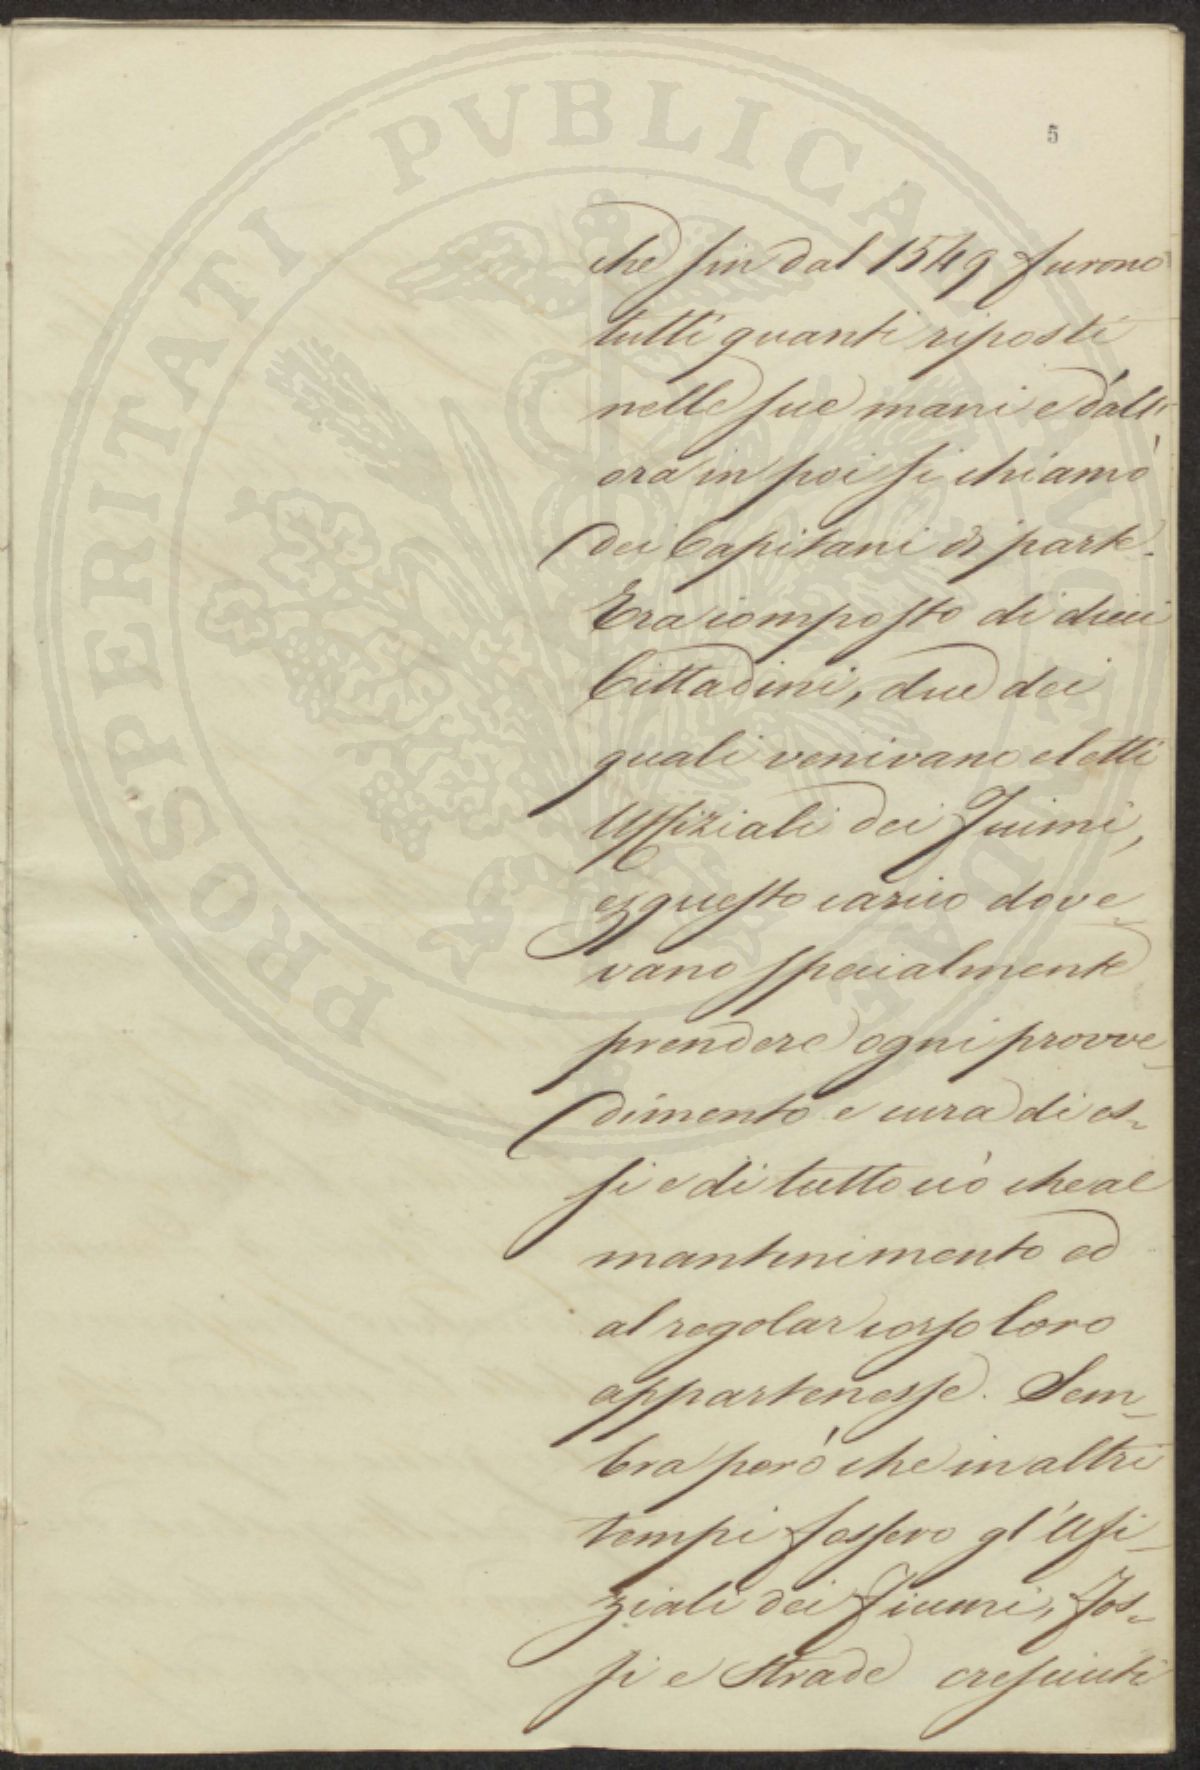 PROSPERITATI PVBLICAE AVGENDAE
5
che sin dal 1549 furono
tutti quanti riposti
nelle sue mani e d'all'
ora in poi si chiamò
dei Capitani di parte.
Era composto di dieci
Cittadini, due dei
quali venivano eletti
Uffiziali dei Fiumi,
e questo carico dove-
vano specialmente
prendere ogni provve-
dimento e cura di es-
si e di tutto ciò che al
mantenimento ed
al regolar corso loro
appartenesse. Sem-
bra però che in altri
tempi fossero gl'Ufi-
ziali dei Fiumi, Fos-
si e Strade cresciuti